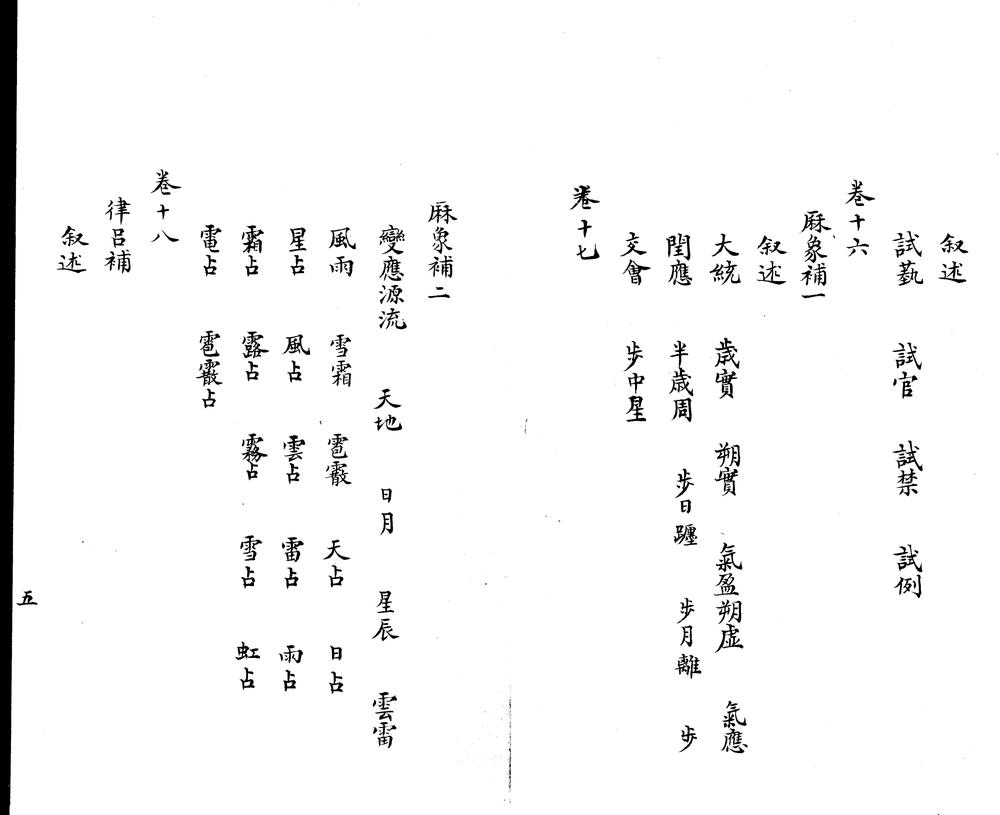 叙述
試埶 試官 試禁 試例
卷十六
厤象補一
叙述
大統 歲實 朔實 氣盈朔虛 氣應
閏應 半歲周 步日躔 步月離 步
交會 步中星
卷十七
厤象補二
變應源流 天地 日月 星辰 雲雷
風雨 雪霜 雹霰 天占 日占
星占 風占 雲占 雷占 雨占
霜占 露占 霧占 雪占 虹占
電占 雹霰占
卷十八
律呂補
叙述
五